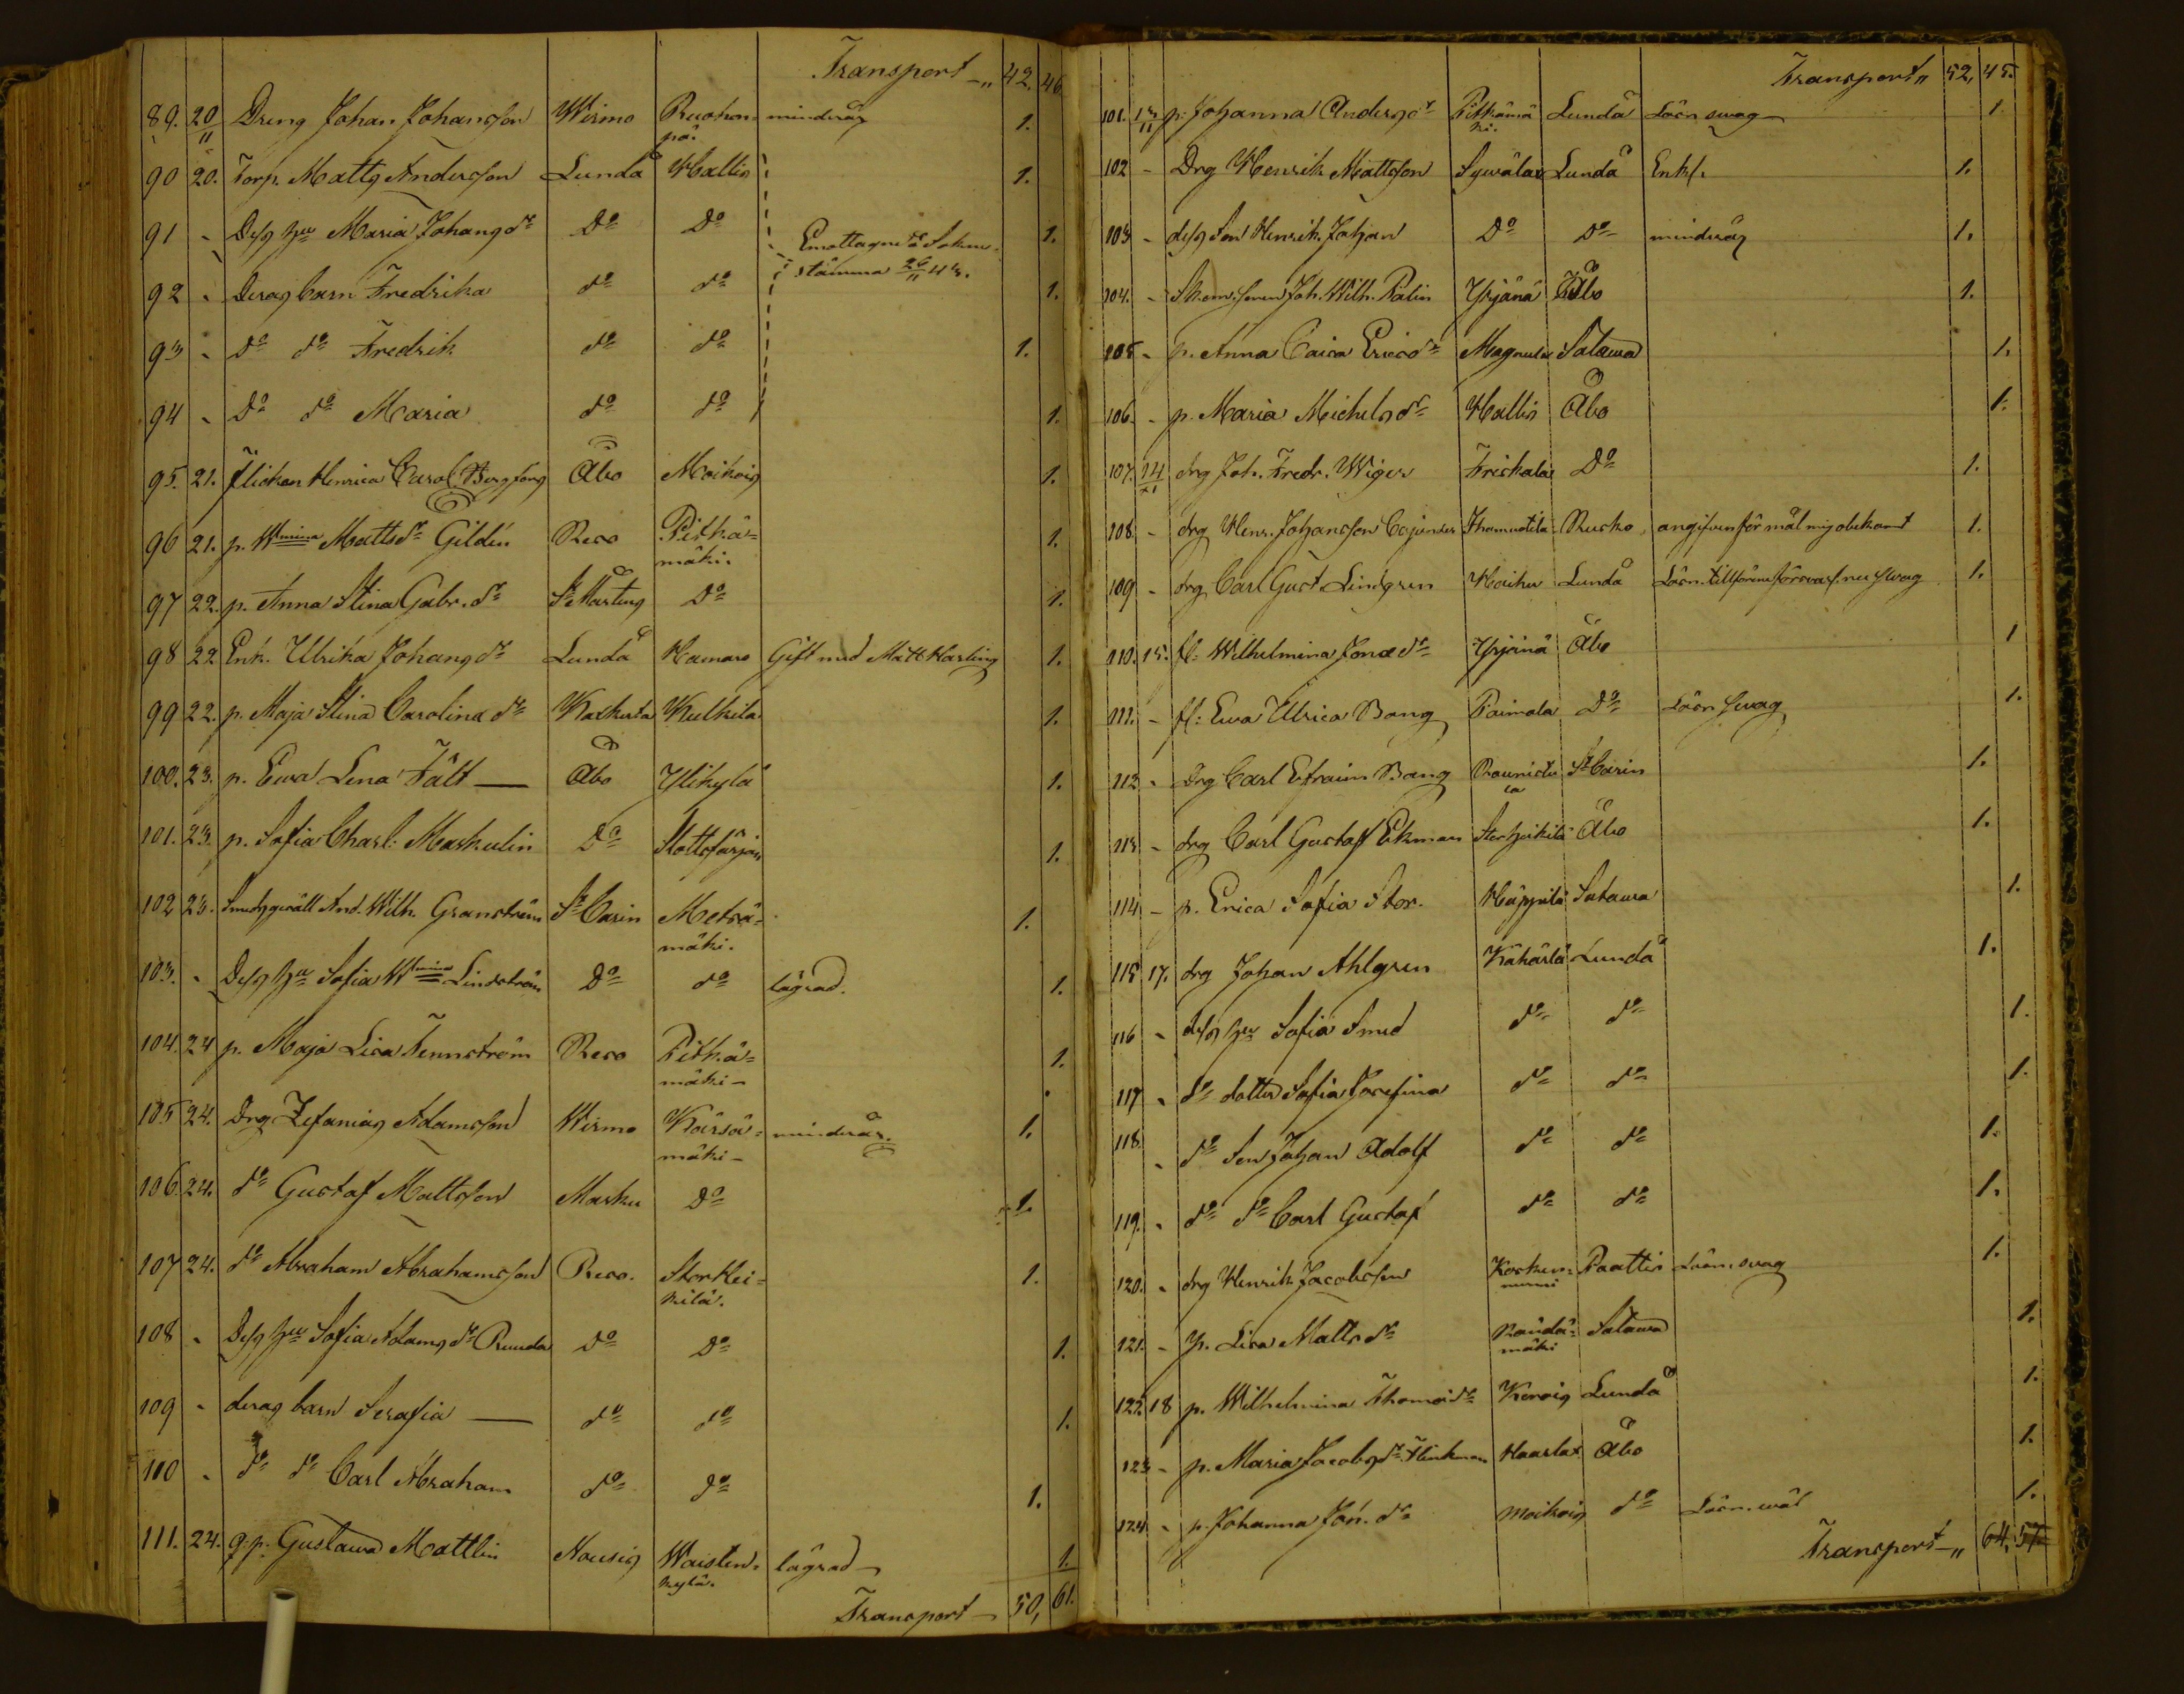 Transport " 42. 46
89. 20/11 Dreng Johan Johansson Wirmo Ruohon- minderårig 1.
pä.
90 20. Torp. Matts Andersson Lundå Hallis 1.
91 - Dess hu Maria Johansdr Do Do 1.
Emottagne å Sokne-
stämma 26/11 43.
92 - Deras barn Fredrika do do 1.
93 - Do do Fredrik do do 1.
94 - Do do Maria do do 1.
95. 21. Flickan Henrica Carol. Bergfors Åbo Moikois 1.
96 21. p. Wmina Mattsdr Gildén Reso Pitkä= 1.
mäki.
97 22. p. Anna Stina Gabr. dr St Mårtens Do 1.
98 22 Enk. Ulrika Johansdr Lundå Hamaro Gift med Matt Harling 1.
99 22. p. Maja Stina Carolina dr Kaskerta Kulkila 1.
100. 23. p. Ewa Lena Fält — Åbo Ylikylä 1.
101. 23. p. Sofia Charl: Maskulin Do Slottsfärjan 1.
102 23. Smedsgesäll And. Wilh. Granström St Carin Metsä= 1.
mäki.
103. - Dess hu Sofia Wmina Lindström Do do lägrad. 1.
104. 24 p. Maja Lisa Fennström Reso Pitkä= 1.
mäki -
105 24. Drg Zefanias Adamsson Wirmo Kärsä= minderår. 1.
mäki -
106. 24. do Gustaf Mattsson Masku Do 1.
107 24. do Abraham Abrahamsson Reso. Stor Hei= 1.
kilä.
108 - Dess hu Sofia Adams dr Ruuda Do Do 1.
109 - deras barn Serafia — do do 1.
110 - do do Carl Abraham do do 1.
111. 24. q. p. Gustawa Mattlin Nousis Waisten- lägrad - 1.
kylä.
Transport - 50, 61.
Transport " 52, 45.
101. 13/11 p. Johanna Andersdr Pitkämä Lundå Läsn. swag 1.
ki.
102 - Drg Henrik Mattsson Sywälax Lundå Enkl. 1.
103 - dess Son Henrik Johan Do Do minderårig 1.
104. - Skom. sonen Joh. Wilh. Palin Yrjänä Åbo 1.
105 - p. Anna Caisa Ericsdr Magnula Satawa 1.
106. - p. Maria Michelsdr Hallis Åbo 1.
107. 14/11 drg Joh. Fredr. Wiger Friskala Do 1.
108. - drg Henr. Johansson Cajander Ihamuotila Rusko, angifven för mål mig obekant 1.
109 - drg Carl Gust. Lindgren Koiku Lundå Läsn. tillförene försvarl. nu swag 1.
110. 15. fl. Wilhelmina Jonædr Yrjänä Åbo 1
111. - fl: Ewa Ulrica Bang Paimala Do Läsn swag 1.
112 - Drg Carl Efraim Bang Raunistu St Carin 1.
la
113 - drg Carl Gustaf Ekman Storheikilä Åbo 1.
114 - p. Erica Sofia Stor. Häppilä Satawa 1.
115 17. drg Johan Ahlgren Kähärlä Lundå 1.
116 - dess hu Sofia Smed do do 1.
117 - do dotter Sofia Josefina do do 1.
118. - do Son Johan Adolf do do 1.
119. - do do Carl Gustaf do do 1.
120. - drg Henrik Jacobsson Kosken= Paattis Läsn. swag 1.
nurmi
121. - p. Lisa Mattsdr Raudä= Satawa 1.
mäki
122. 18 p. Wilhelmina Thomædr Kerois Lundå 1.
123 - p. Maria Jacobsdr Flinkman Haarla Åbo 1.
124 - p. Johanna Joh. dr Moikois do Läsn. wäl 1.
Transport - " 64, 57